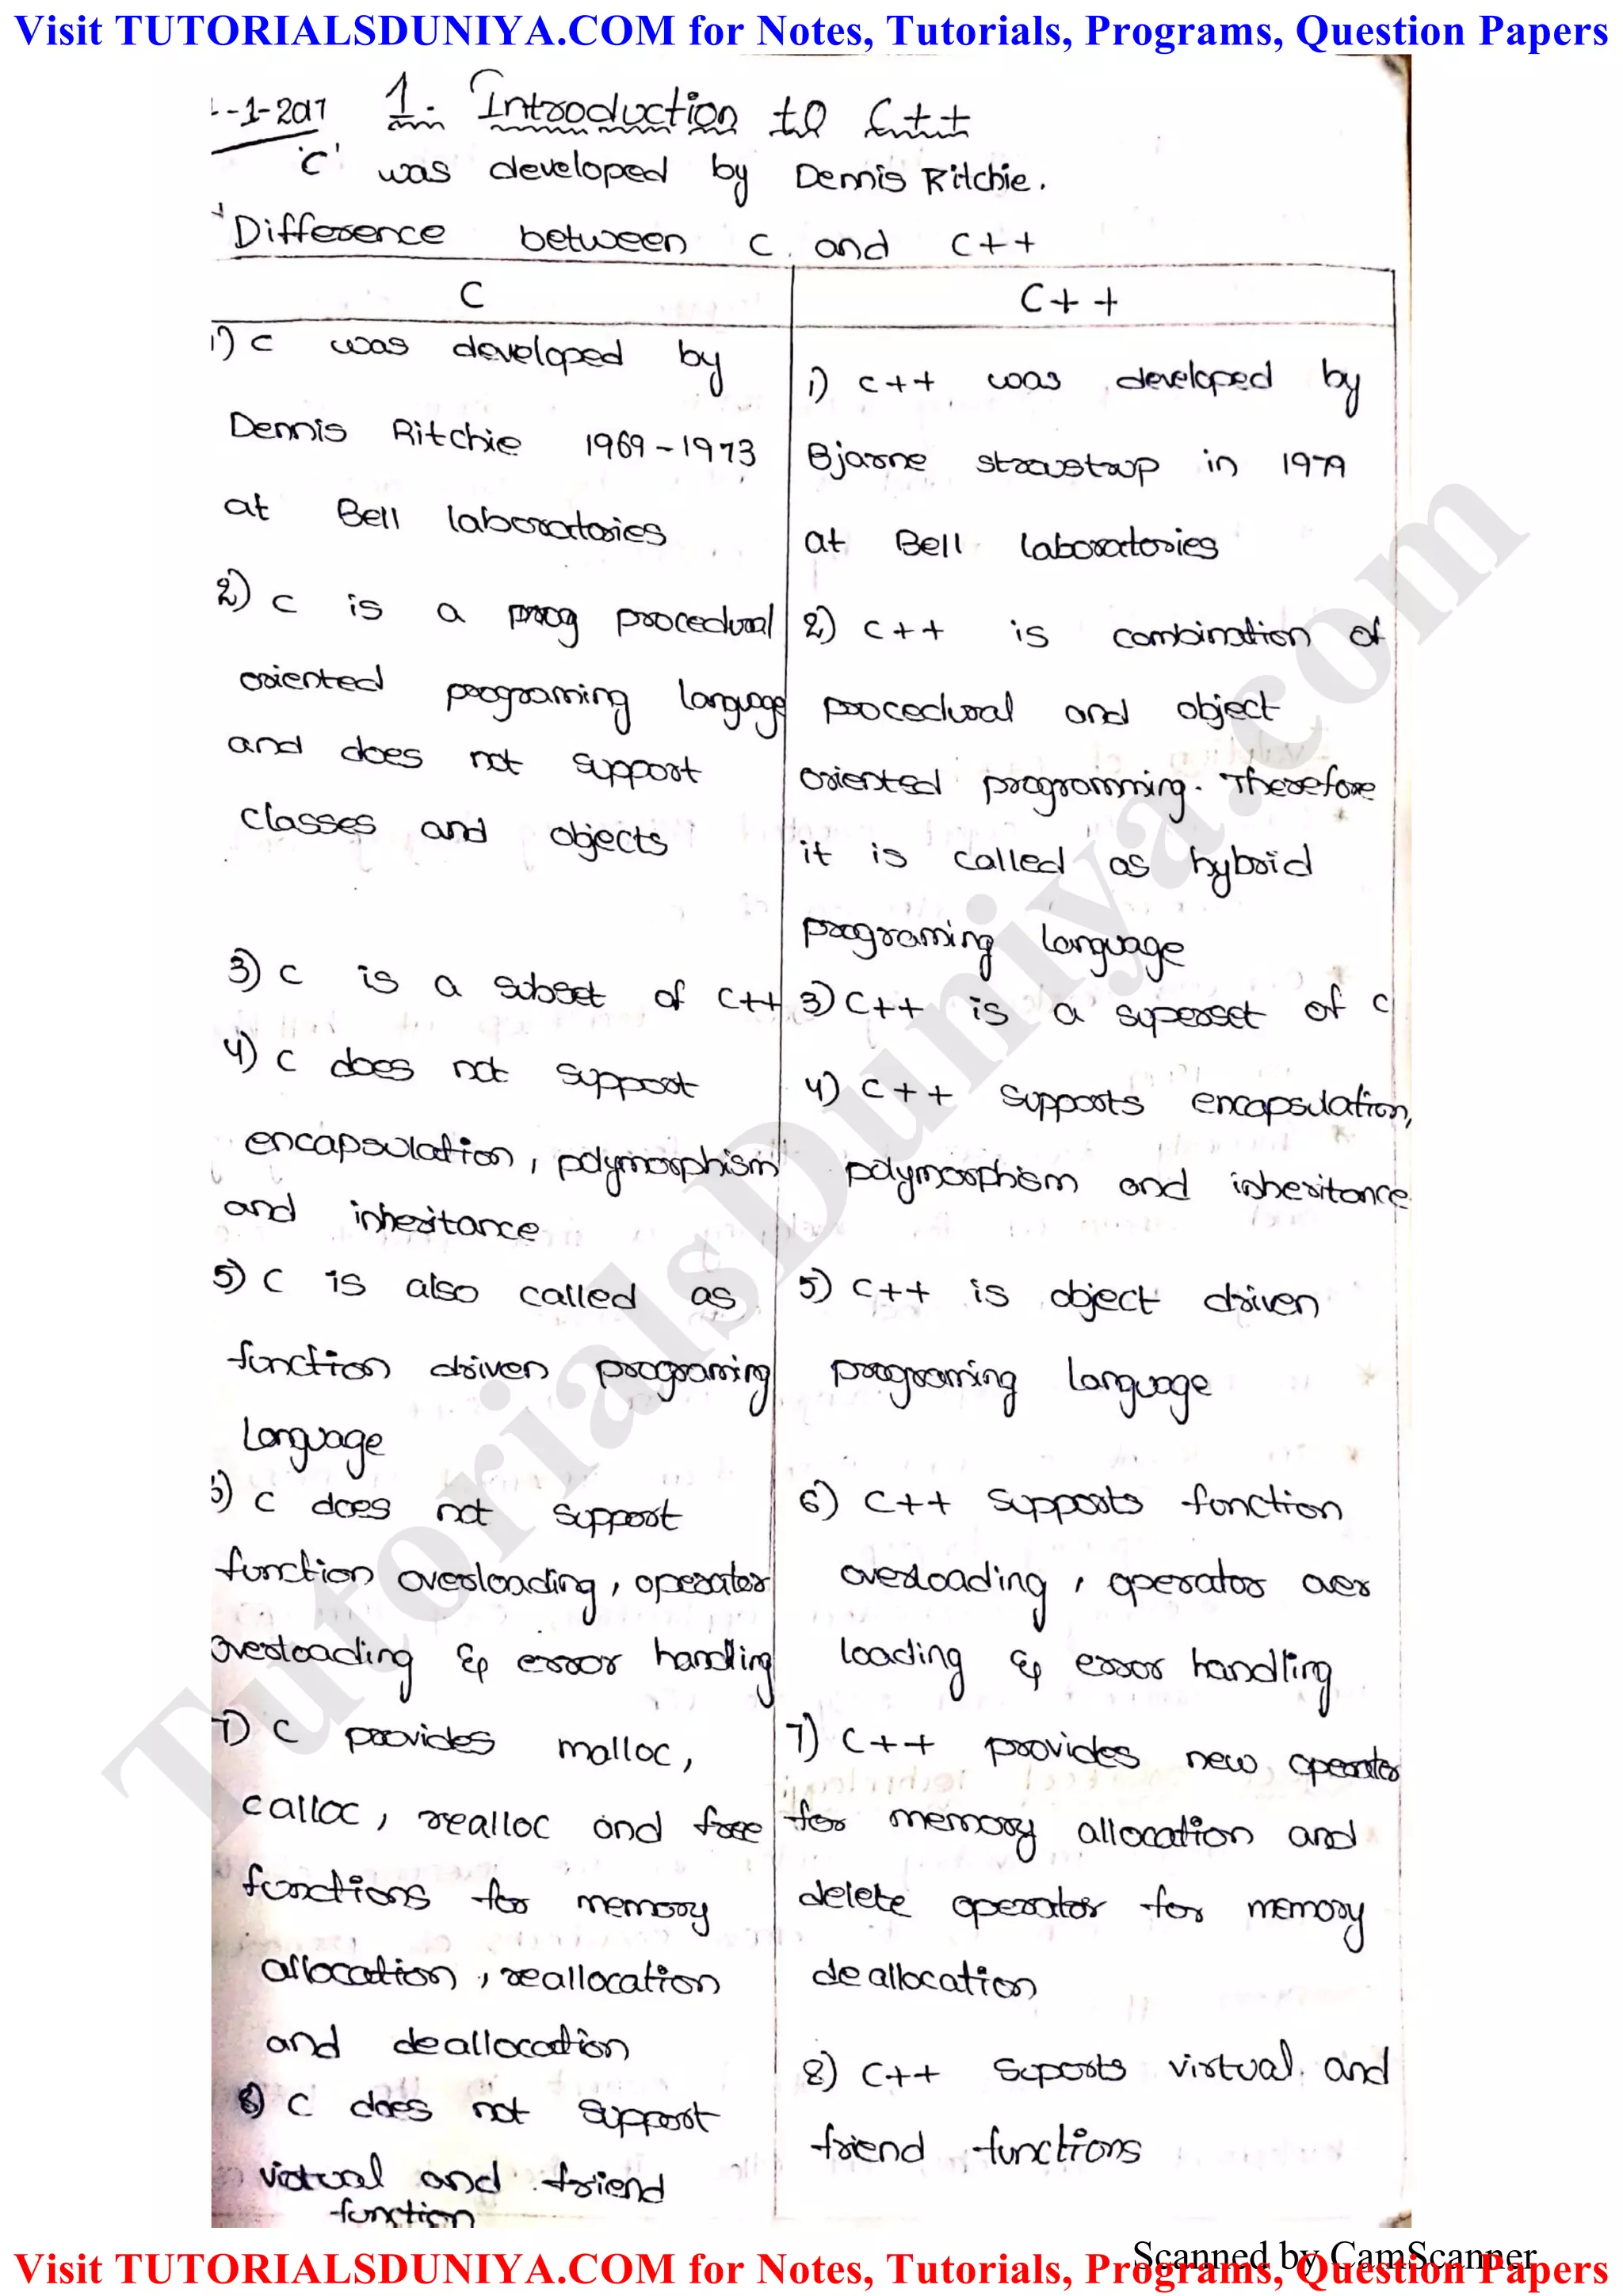 Visit TUTORIALSDUNIYA.COM for Notes, Tutorials, Programs, Question Papers
-1-2017 1. Introduction to C++
'C' was developed by Dennis Ritchie.
Difference between C and C++
C
1) C was developed by
Dennis Ritchie 1969-1973
at Bell laboratories
2) C is a procedural
oriented programing language
and does not support
classes and objects
3) C is a subset of C++
4) C does not support
encapsulation, polymorphism
and inheritance
5) C is also called as
function driven programing
language
6) C does not support
function overloading, operator
overloading & error handling
7) C provides malloc,
calloc, realloc and free
functions for memory
allocation, reallocation
and deallocation
8) C does not support
virtual and friend
function
C++
1) C++ was developed by
Bjarne stroustrup in 1979
at Bell laboratories
2) C++ is combination of
procedural and object
oriented programming. Therefore
it is called as hybrid
programing language
3) C++ is a superset of C
4) C++ supports encapsulation,
polymorphism and inheritance
5) C++ is object driven
programing language
6) C++ supports function
overloading, operator over
loading & error handling
7) C++ provides new operator
for memory allocation and
delete operator for memory
deallocation
8) C++ suports virtual and
friend functions
TutorialsDuniya.com
Scanned by CamScanner
Visit TUTORIALSDUNIYA.COM for Notes, Tutorials, Programs, Question Papers